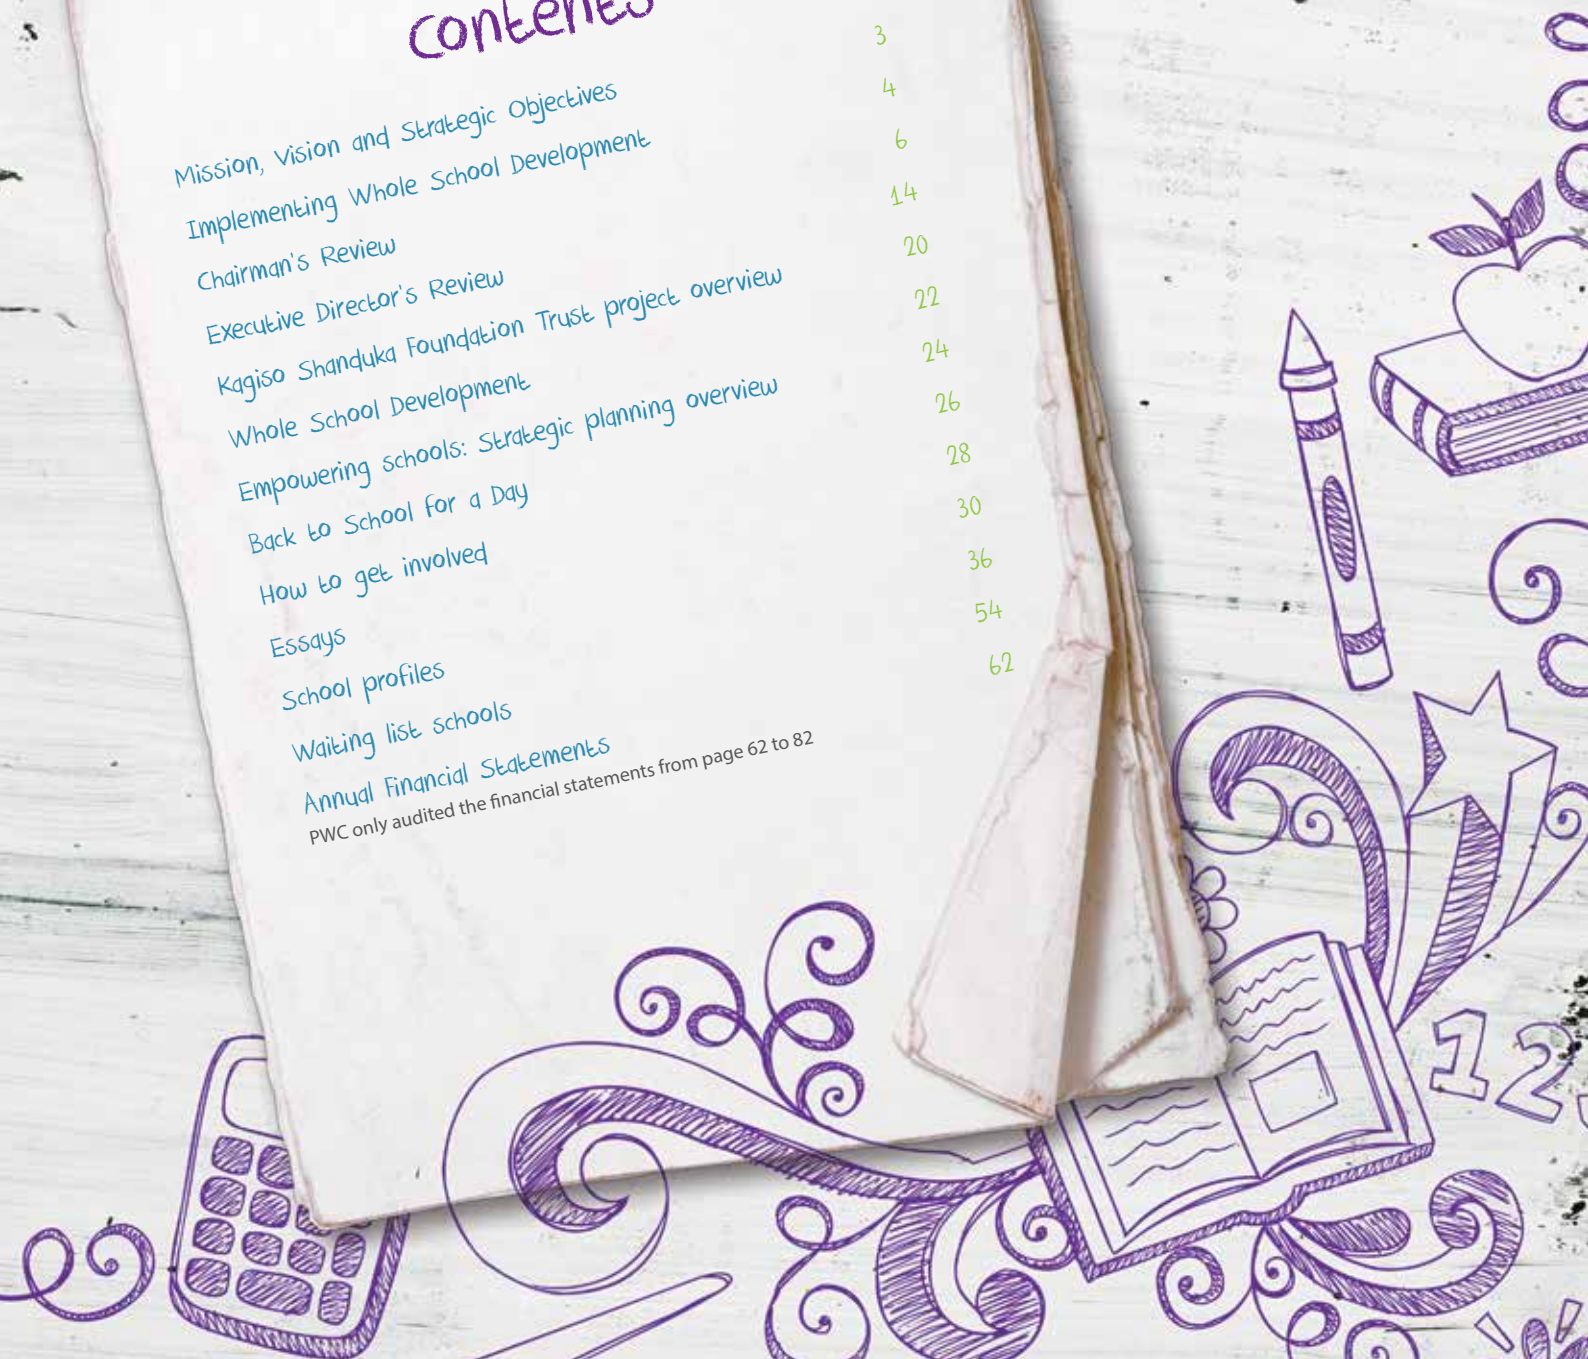 contents
Mission, Vision and Strategic Objectives 3
Implementing Whole School Development 4
Chairman's Review 6
Executive Director's Review 14
Kagiso Shanduka Foundation Trust project overview 20
Whole School Development 22
Empowering schools: Strategic planning overview 24
Back to School for a Day 26
How to get involved 28
Essays 30
School profiles 36
Waiting list schools 54
Annual Financial Statements 62
PWC only audited the financial statements from page 62 to 82
1 2